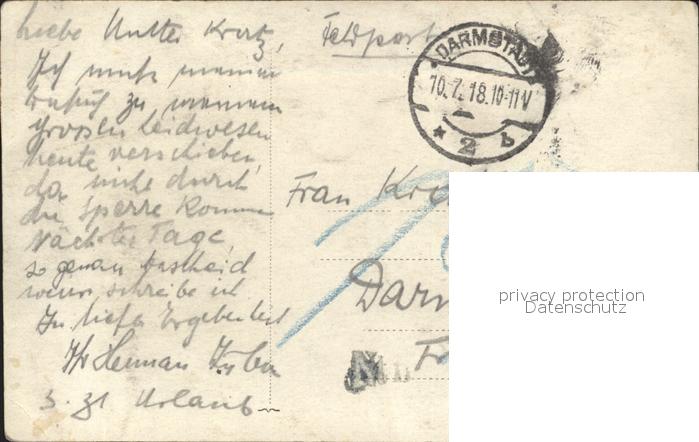 Liebe Mutter Kratz,
Feldpost
Ich muss meinen
Besuch zu meinem
grossen Leidwesen
heute verschieben,
da nicht durch
die Sperre komme
Nächster Tage,
so genau Bescheid
weiss schreibe ich
In tiefer Ergebenheit
Ihr Herman
z. Zt Urlaub
DARMSTADT
10.7.18.10-11V
* 2 b
Frau Kr
Darm
privacy protection
Datenschutz